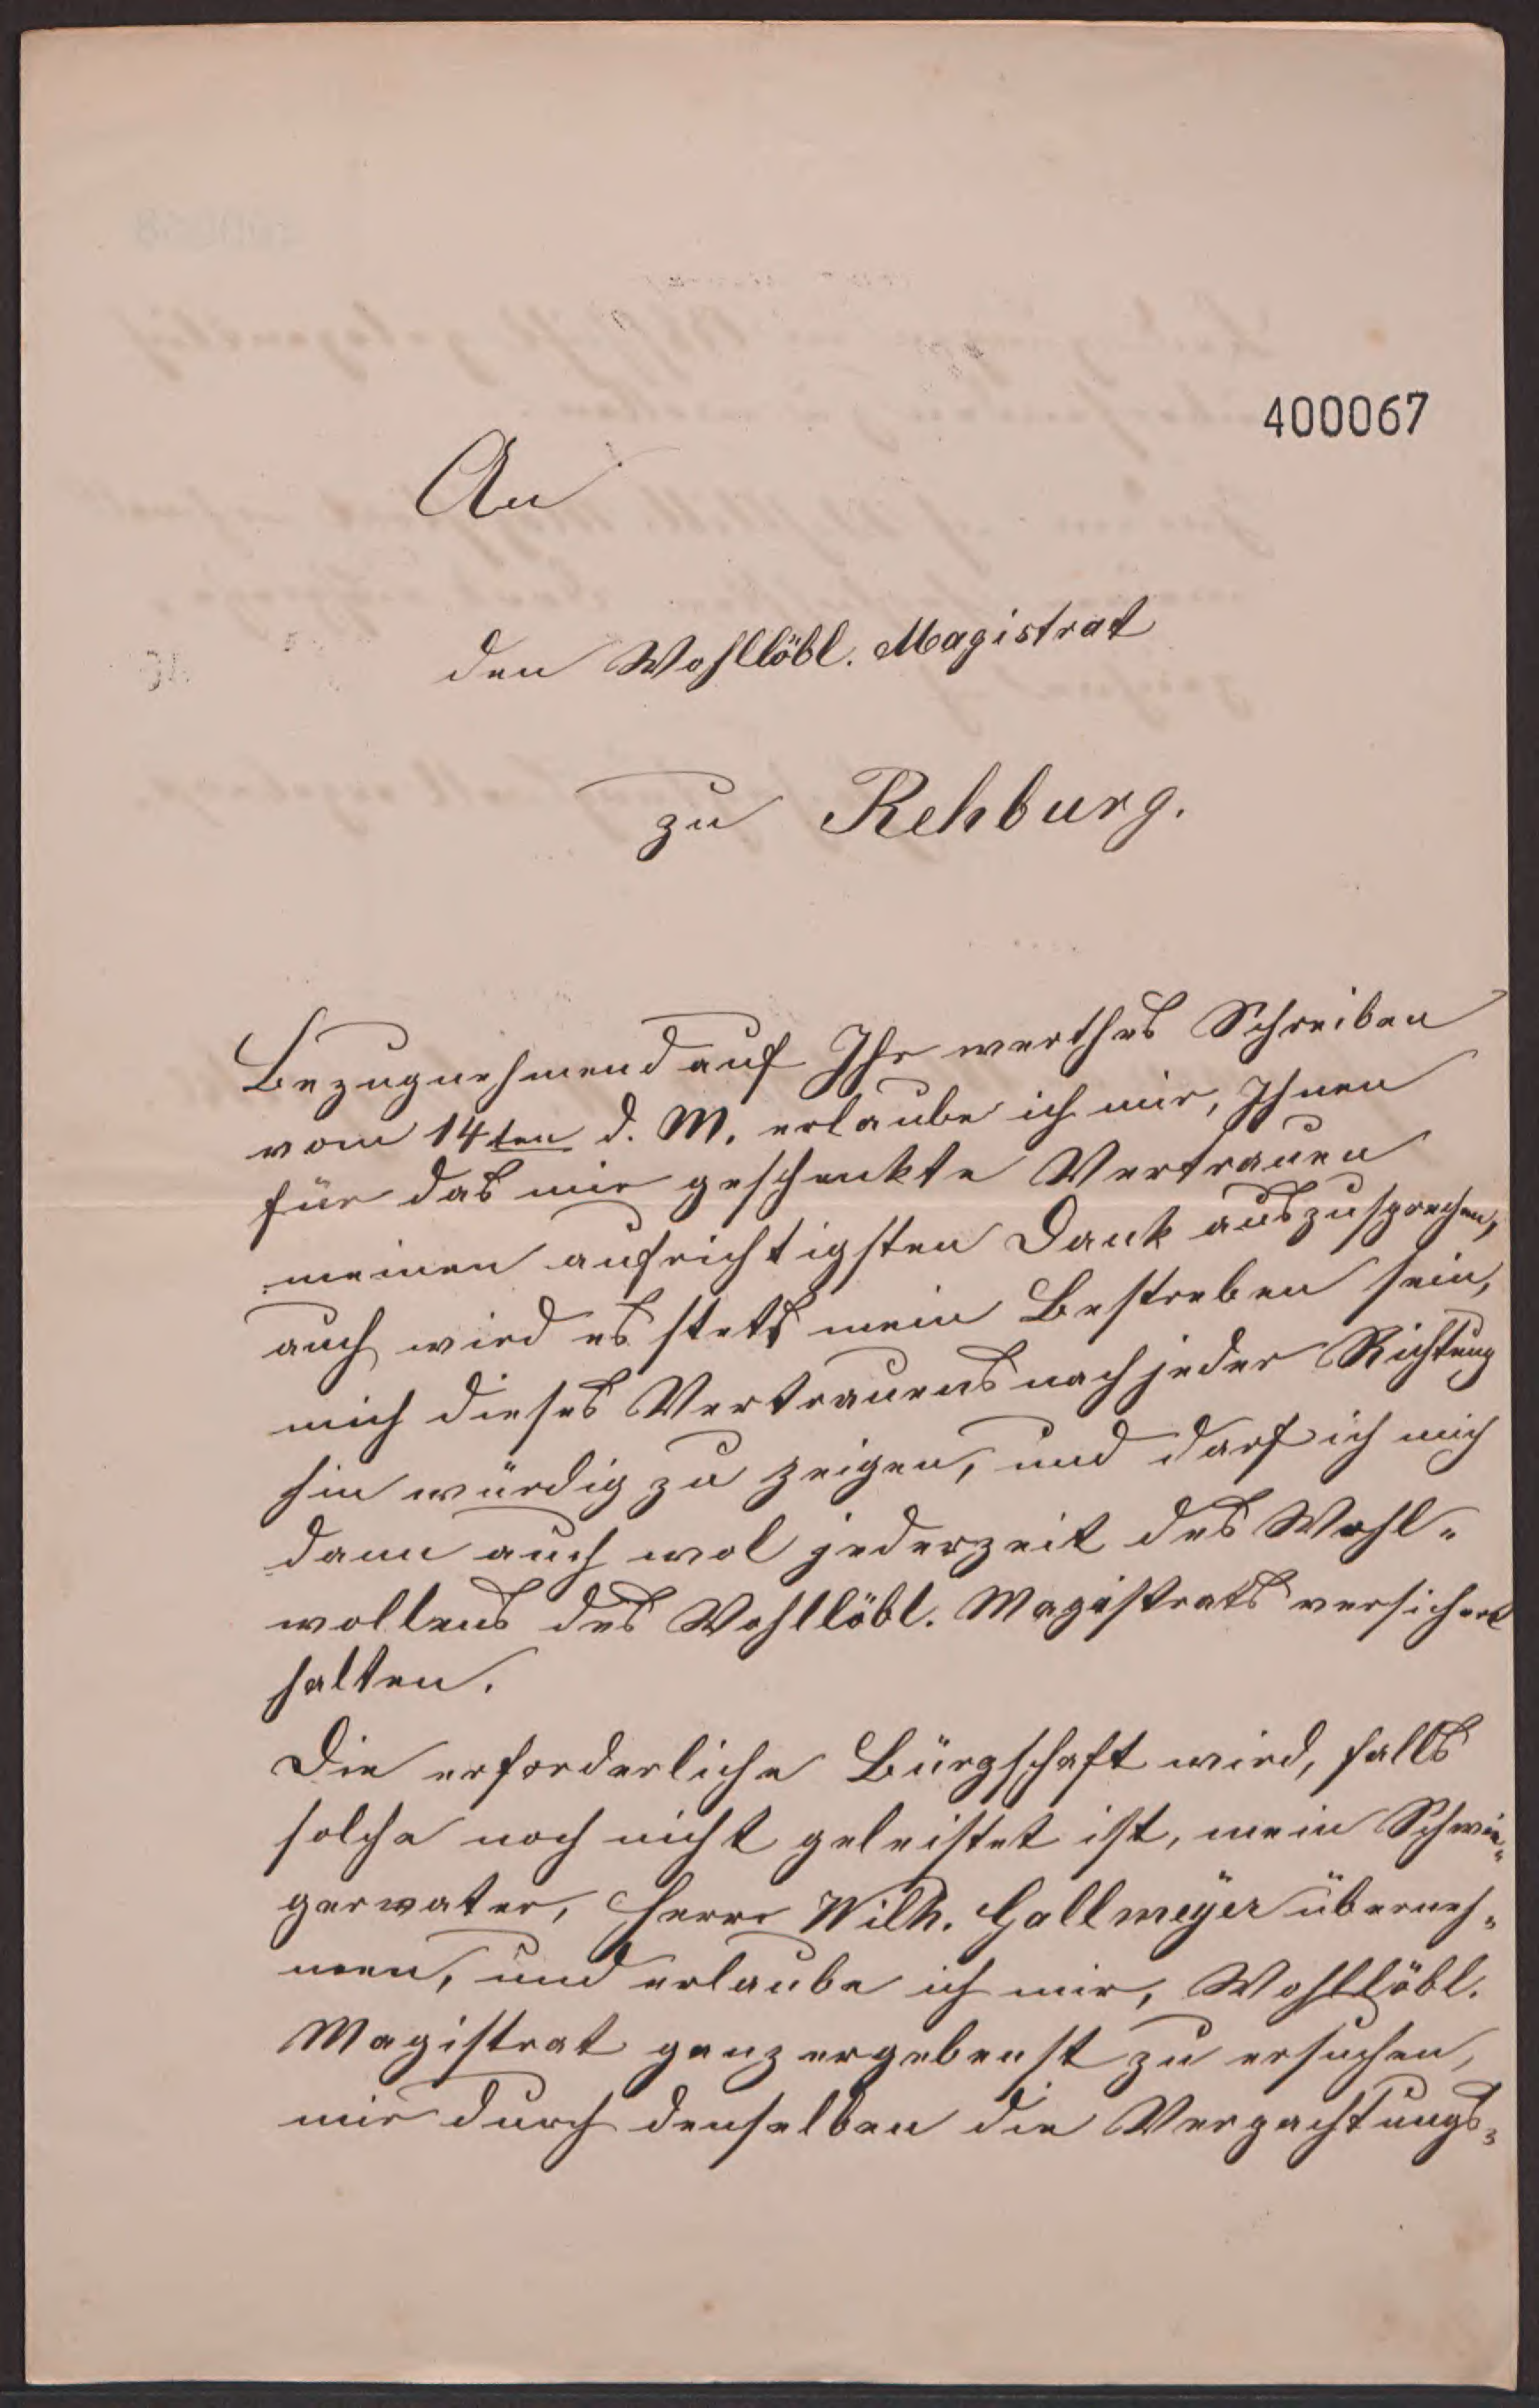 400067
An
den Wohllöbl. Magistrat
zu Rehburg.
Bezugnehmend auf Ihr werthes Schreiben
vom 14ten d. M. erlaube ich mir, Ihnen
für das mir geschenkte Vertrauen
meinen aufrichtigsten Dank auszusprechen,
auch wird es stets mein Bestreben sein,
mich dieses Vertrauens nach jeder Richtung
hin würdig zu zeigen, und darf ich mich
dann auch wol jederzeit des Wohl-
wollens des Wohllöbl. Magistrats versichert
halten.
Die erforderliche Bürgschaft wird, falls
solche noch nicht geleistet ist, mein Schwie-
gervater, Herr Wilh. Gallmeyer überneh-
men, und erlaube ich mir, Wohllöbl.
Magistrat ganz ergebenst zu ersuchen,
mir durch denselben die Verpachtungs-